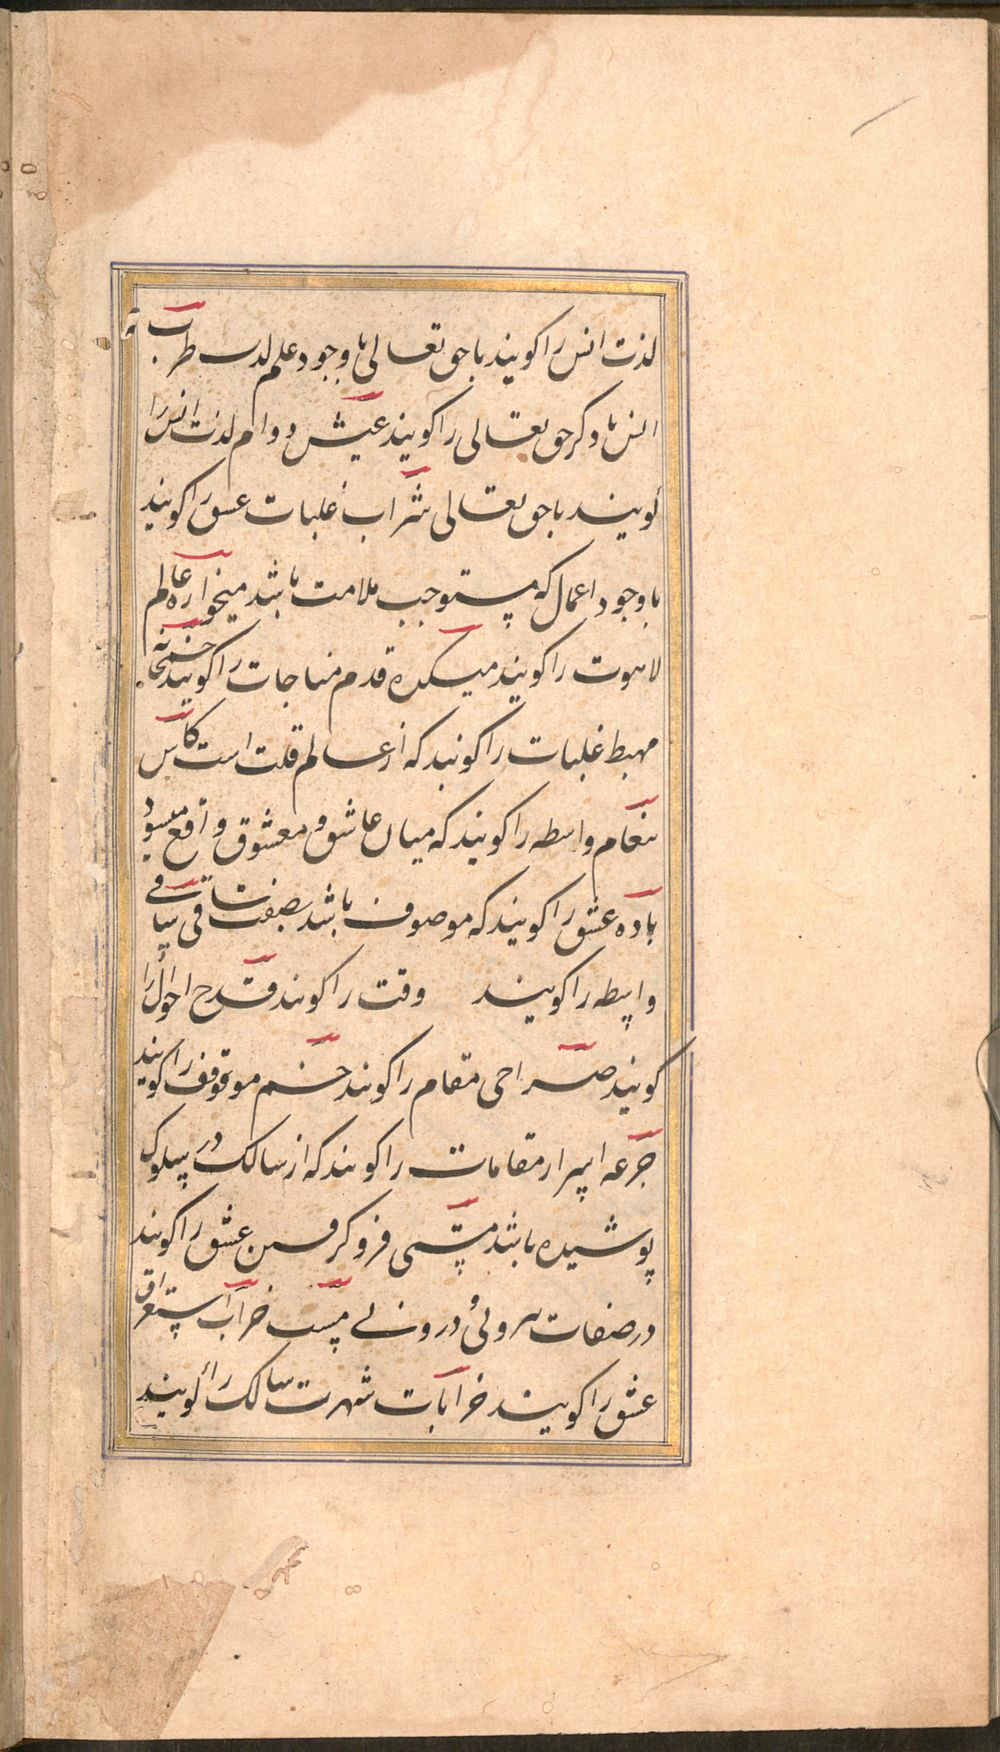 لذت انس را کویند با حق تعالی با وجود علم لدت طرب
انس با ذکر حق تعالی را کویند عیش دوام لذت انس را
کویند با حق تعالی شراب غلبات عشق را کویند
با وجود اعمال که مستوجب ملامت باشد میخواره عالم
لاهوت را کویند میکده قدم مناجات را کویند خمخانه
مهبط غلبات را کویند که از عالم قلت است کاس
مقام واسطه را کویند که میان عاشق و معشوق واقع میشود
باده عشق را کویند که موصوف باشد بصفت ساقی
واسطه را کویند وقت را کویند قدح احوال را
کویند صراحی مقام را کویند خم موقوف را کویند
جرعه اسرار مقامات را کویند که از سالک در سلوک
پوشیده باشد مستی فرو کرفتن عشق را کویند
در صفات بیرونی و درونی مست خراب استغراق
عشق را کویند خرابات شهرت سالک را کویند